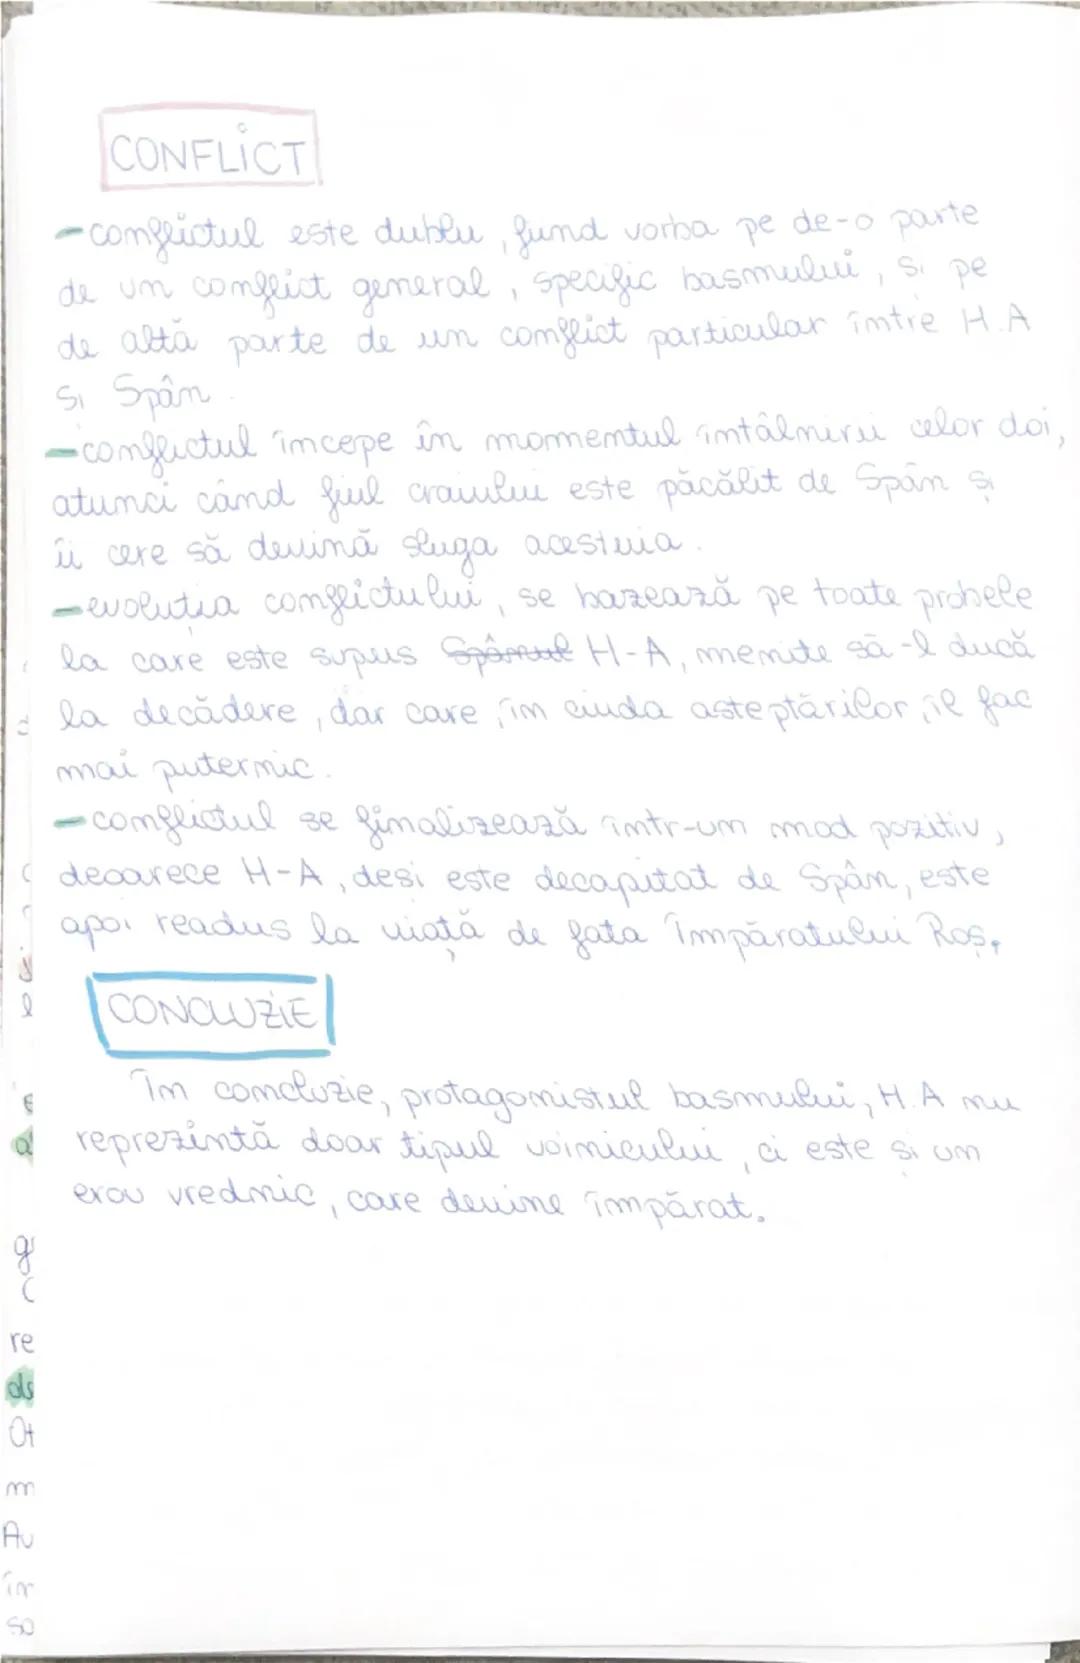 CONFLICT
-conflictul este dublu, fiind vorba pe de-o parte
de un conflict general, specific basmului, și pe
de altă parte de un conflict particular între H.A
și Spân.
-conflictul începe în momentul întâlnirii celor doi,
atunci când fiul craiului este păcălit de Spân și
îi cere să devină sluga acestuia.
-evoluția conflictului, se bazează pe toate probele
la care este supus Spânul H-A, menite să-l ducă
la decădere, dar care, în ciuda asteptărilor, îl fac
mai puternic.
-conflictul se finalizează într-un mod pozitiv,
deoarece H-A, desi este decapitat de Spân, este
apoi readus la viață de fata Împăratului Roș.
CONCLUZIE
În concluzie, protagonistul basmului, H.A nu
reprezintă doar tipul voinicului, ci este și un
erou vrednic, care devine împărat.
re
de
Ot
m
Au
în
so